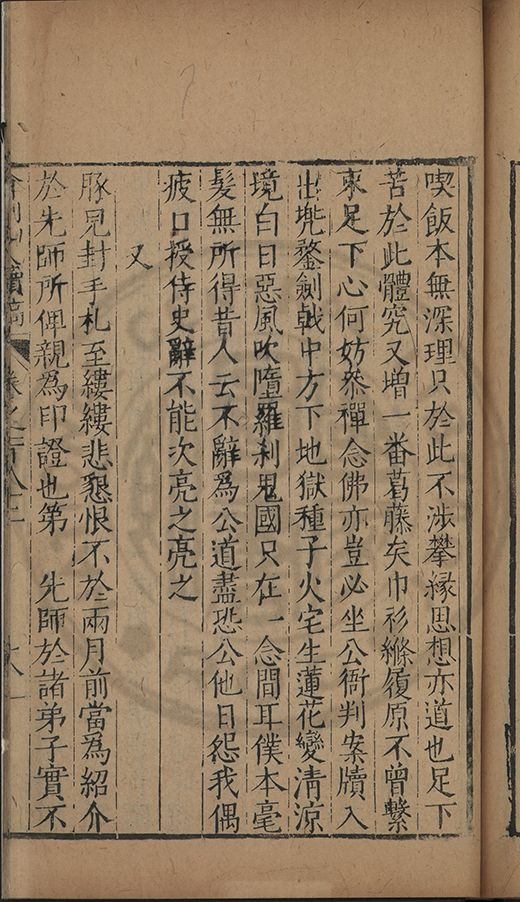 喫飯本無深理只於此不涉攀緣思想亦道也足下
苦於此體究又增一番葛藤矣巾衫絛履原不曾繫
束足下心何妨叅禪念佛亦豈必坐公衙判案牘入
出兠鍪劍戟中方下地獄種子火宅生蓮花變清涼
境白日惡風吹墮羅刹鬼國只在一念間耳僕本毫
髮無所得昔人云不辭爲公道盡恐公他日怨我偶
疲口授侍史辭不能次亮之亮之
又
豚兒封手札至縷縷悲懇恨不於兩月前當爲紹介
於先師所俾親爲印證也第　先師於諸弟子實不
續稿 卷之一百八十二